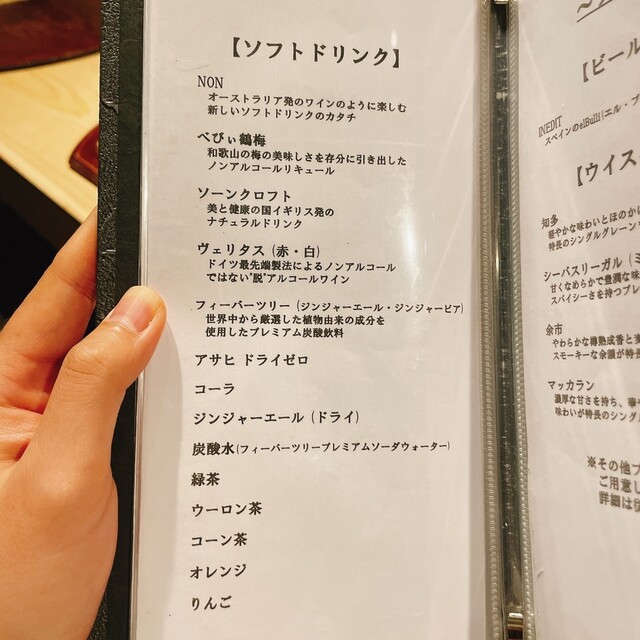 【ソフトドリンク】
NON
オーストラリア発のワインのように楽しむ
新しいソフトドリンクのカタチ
べびぃ鶴梅
和歌山の梅の美味しさを存分に引き出した
ノンアルコールリキュール
ソーンクロフト
美と健康の国イギリス発の
ナチュラルドリンク
ヴェリタス (赤・白)
ドイツ最先端製法によるノンアルコール
ではない"脱"アルコールワイン
フィーバーツリー (ジンジャーエール・ジンジャービア)
世界中から厳選した植物由来の成分を
使用したプレミアム炭酸飲料
アサヒ ドライゼロ
コーラ
ジンジャーエール (ドライ)
炭酸水(フィーバーツリープレミアムソーダウォーター)
緑茶
ウーロン茶
コーン茶
オレンジ
りんご
【ビール
INEDIT
スペインのelBulli(エル・ブ
【ウイス
知多
軽やかな味わいとほのか
特長のシングルグレーン
シーバスリーガル (ミ
甘くなめらかで豊潤な味
スパイシーさを持つブレ
余市
やわらかな樽熟成香と麦
スモーキーな余韻が特長
マッカラン
濃厚な甘さを持ち、華や
味わいが特長のシングル
※その他ブ
ご用意し
詳細は従